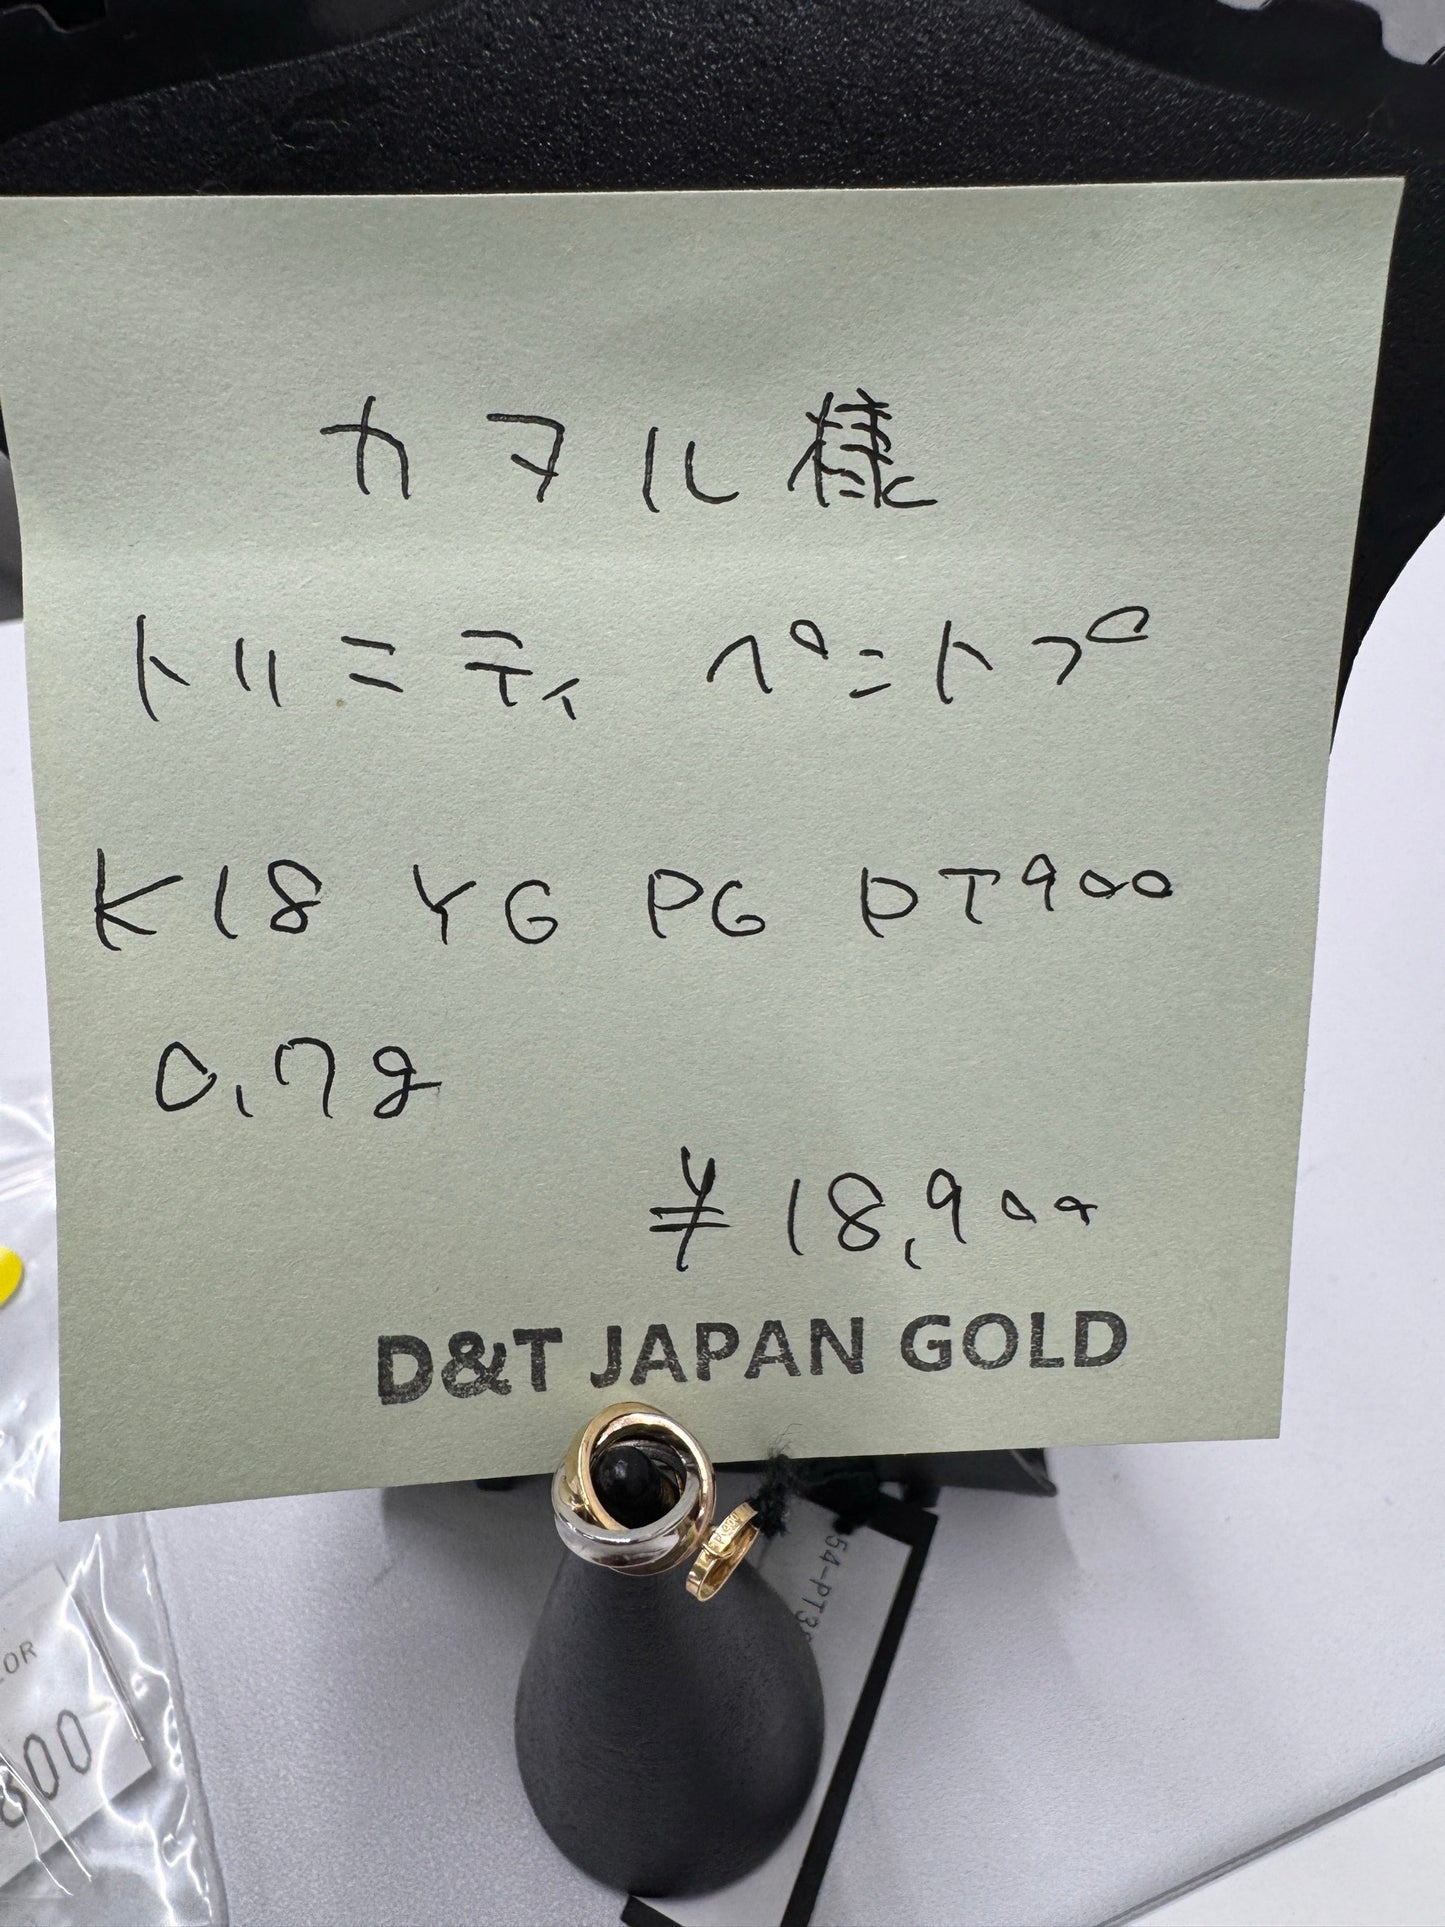 カマル様
トリニティ ペントプ
K18 YG PG PT900
0.7g
¥18,900
D&T JAPAN GOLD
54-PT3
LOR
800